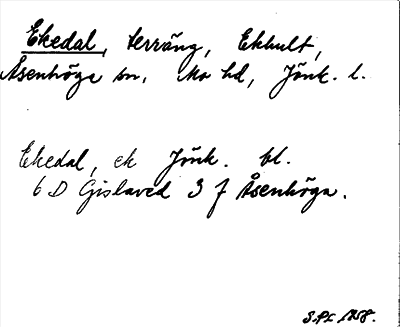 Ekedal, terräng, Ekhult,
Åsenhöga sn, Mo hd, Jönk. l.
Ekedal, ek Jönk. bl.
6 D Gislaved 3 f Åsenhöga.
1958.